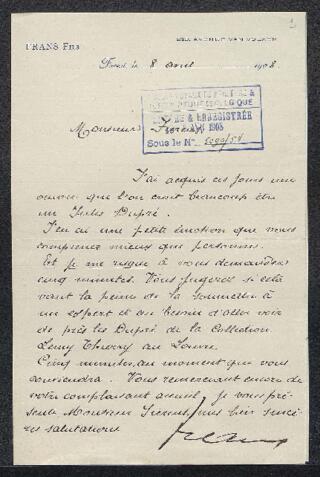 FRANS Fils
8 avril 1908
& ENREGISTRÉE
1908
Sous le N°
Monsieur
J'ai acquis ces jours une
œuvre que l'on croit beaucoup être
un Jules Dupré.
J'en ai une petite émotion que vous
comprenez mieux que personne.
Et je me risque à vous demander
cinq minutes. Vous jugerez si cela
vaut la peine de la soumettre à
un expert et au besoin d'aller voir
de près les Dupré de la Collection
Thierry au Louvre.
Cinq minutes, au moment que vous
conviendra. Vous remerciant encore de
votre complaisant accueil, je vous pré-
sente Monsieur mes bien sincè-
res salutations